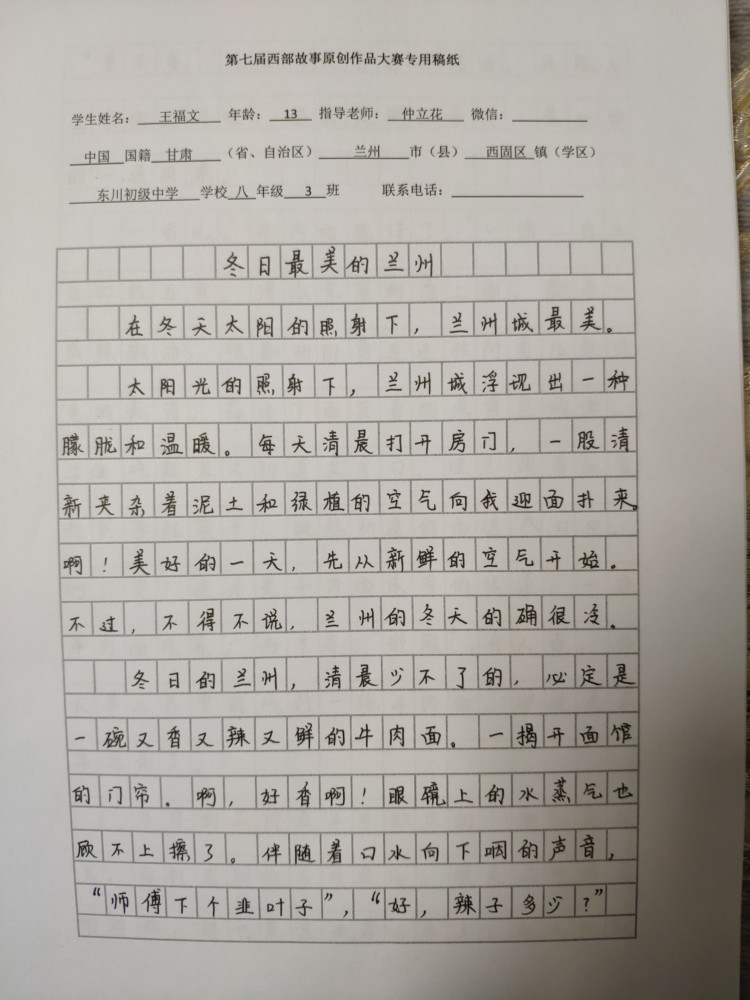 第七届西部故事原创作品大赛专用稿纸
学生姓名：王福文 年龄：13 指导老师：仲立花 微信：
中国 国籍 甘肃 （省、自治区） 兰州 市（县） 西固区 镇（学区）
东川初级中学 学校 八 年级 3 班 联系电话：
冬日最美的兰州
在冬天太阳的照射下，兰州城最美。
太阳光的照射下，兰州城浮现出一种
朦胧和温暖。每天清晨打开房门，一股清
新夹杂着泥土和绿植的空气向我迎面扑来。
啊！美好的一天，先从新鲜的空气开始。
不过，不得不说，兰州的冬天的确很冷。
冬日的兰州，清晨少不了的，必定是
一碗又香又辣又鲜的牛肉面。一揭开面馆
的门帘。啊，好香啊！眼镜上的水蒸气也
顾不上擦了。伴随着口水向下咽的声音，
“师傅下个韭叶子”，“好，辣子多少？”